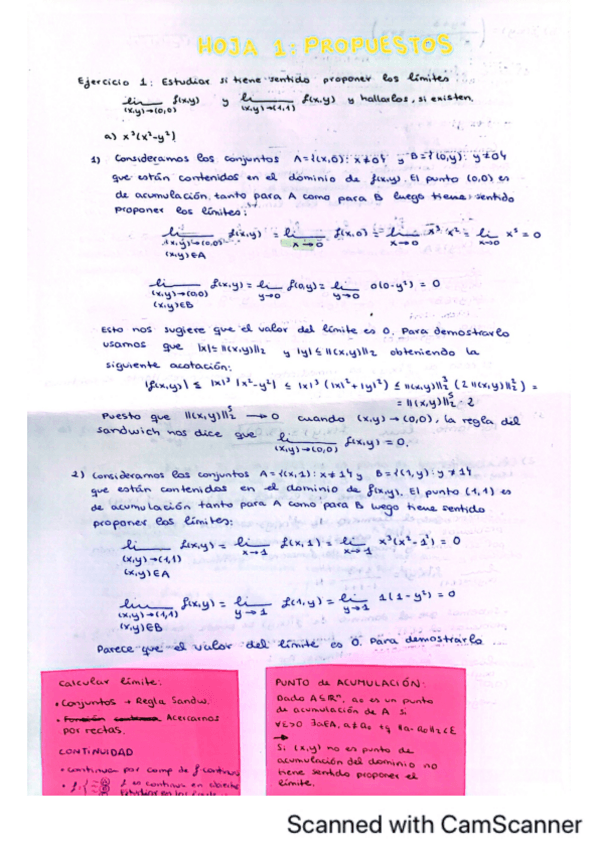 HOJA 1: PROPUESTOS
Ejercicio 1: Estudiar si tiene sentido proponer los límites
lim (x,y)→(0,0) f(x,y) y lim (x,y)→(1,1) f(x,y) y hallarlos, si existen.
a) x³(x²-y²)
1) Consideramos los conjuntos A={(x,0): x≠0} y B={(0,y): y≠0}
que están contenidos en el dominio de f(x,y). El punto (0,0) es
de acumulación tanto para A como para B luego tiene sentido
proponer los límites:
lim (x,y)→(0,0) (x,y)∈A f(x,y) = lim x→0 f(x,0) = lim x→0 x³·x² = lim x→0 x⁵ = 0
lim (x,y)→(0,0) (x,y)∈B f(x,y) = lim y→0 f(0,y) = lim y→0 0(0-y²) = 0
Esto nos sugiere que el valor del límite es 0. Para demostrarlo
usamos que |x|≤||(x,y)||₂ y |y|≤||(x,y)||₂ obteniendo la
siguiente acotación:
|f(x,y)| ≤ |x|³ |x²-y²| ≤ |x|³ (|x|²+|y|²) ≤ ||(x,y)||₂³ (2||(x,y)||₂²) =
= ||(x,y)||₂⁵ · 2
Puesto que ||(x,y)||₂⁵ → 0 cuando (x,y)→(0,0), la regla del
sandwich nos dice que lim (x,y)→(0,0) f(x,y) = 0.
2) Consideramos los conjuntos A={(x,1): x≠1} y B={(1,y): y≠1}
que están contenidos en el dominio de f(x,y). El punto (1,1) es
de acumulación tanto para A como para B luego tiene sentido
proponer los límites:
lim (x,y)→(1,1) (x,y)∈A f(x,y) = lim x→1 f(x,1) = lim x→1 x³(x²-1²) = 0
lim (x,y)→(1,1) (x,y)∈B f(x,y) = lim y→1 f(1,y) = lim y→1 1(1-y²) = 0
Parece que el valor del límite es 0. Para demostrarlo
Calcular límite:
• Conjuntos → Regla Sandw.
• Acercarnos
por rectas.
CONTINUIDAD
• continua por comp de f continuas
PUNTO de ACUMULACIÓN:
Dado A⊆ℝⁿ, a₀ es un punto
de acumulación de A si
∀ε>0 ∃a∈A, a≠a₀ tq ||a-a₀||₂<ε
→
Si (x,y) no es punto de
acumulación del dominio no
tiene sentido proponer el
límite.
Scanned with CamScanner